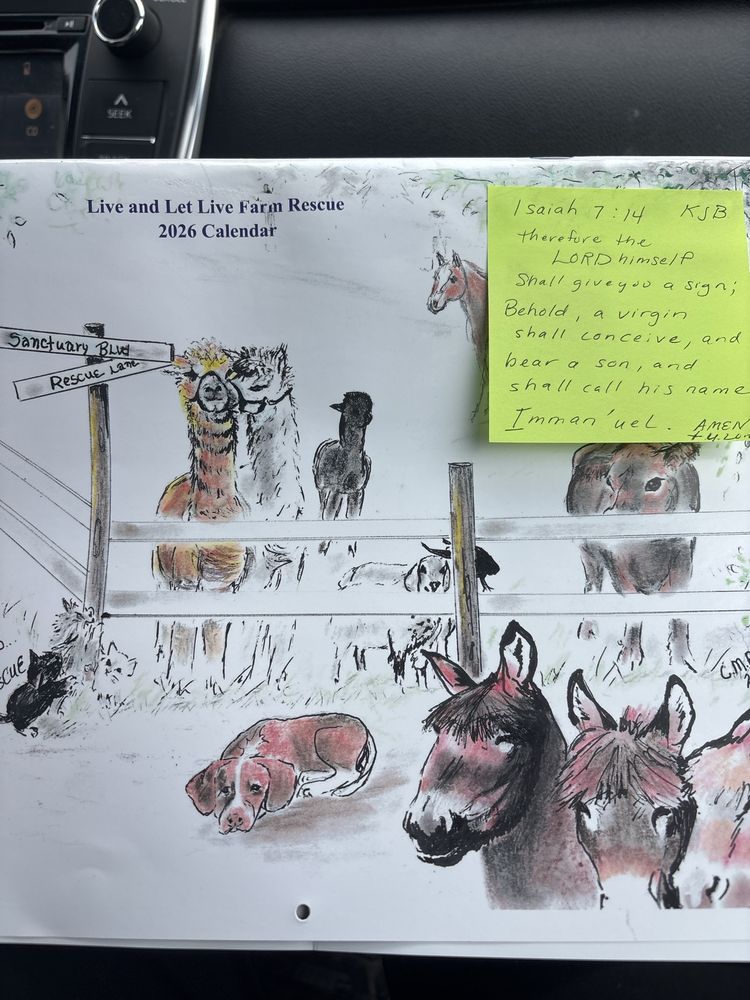 SEEK
CD
Live and Let Live Farm Rescue
2026 Calendar
Sanctuary Blvd
Rescue Lane
Isaiah 7:14 KJB
therefore the
LORD himself
Shall give you a sign;
Behold, a virgin
shall conceive, and
bear a son, and
shall call his name
Imman'uel. AMEN